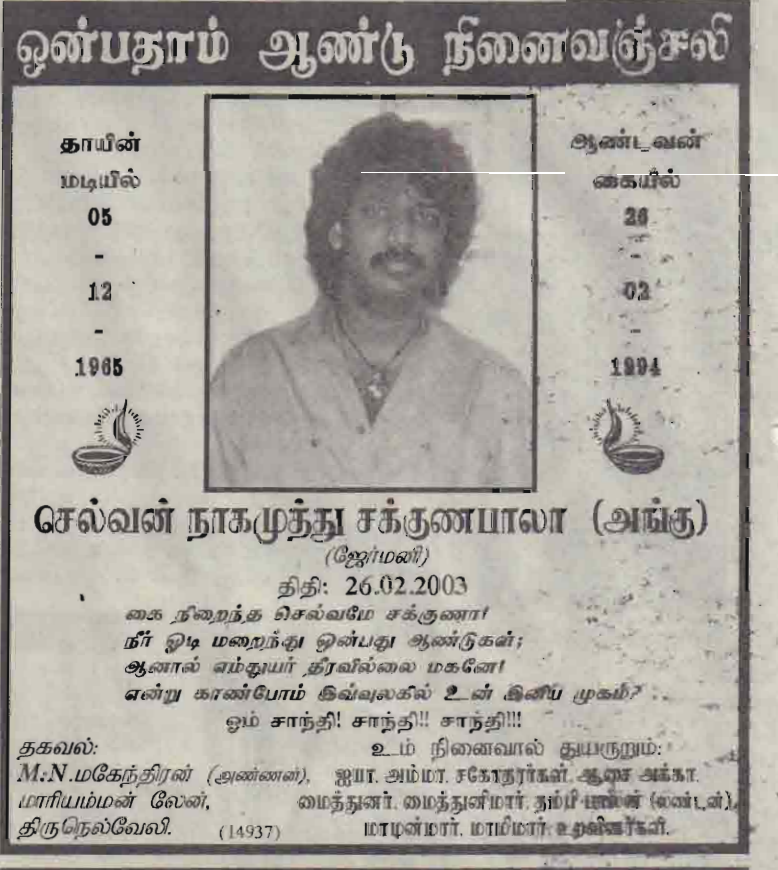 ஒன்பதாம் ஆண்டு நினைவஞ்சலி
தாயின்
மடியில்
05
-
12
-
1965
ஆண்டவன்
கையில்
26
-
02
-
1994
செல்வன் நாகமுத்து சக்குணபாலா (அங்கு)
(ஜேர்மனி)
திதி: 26.02.2003
கை நிறைந்த செல்வமே சக்குணா!
நீர் ஓடி மறைந்து ஒன்பது ஆண்டுகள்;
ஆனால் எம்துயர் தீரவில்லை மகனே!
என்று காண்போம் இவ்வுலகில் உன் இனிய முகம்? ..
ஓம் சாந்தி! சாந்தி!! சாந்தி!!!
தகவல்:
M.N.மகேந்திரன் (அண்ணன்),
மாரியம்மன் லேன்,
திருநெல்வேலி. (14937)
உம் நினைவால் துயருறும்:
ஐயா, அம்மா, சகோதரர்கள், ஆசை அக்கா,
மைத்துனர், மைத்துனிமார், தம்பி பாலன் (லண்டன்),
மாமன்மார், மாமிமார், உறவினர்கள்.